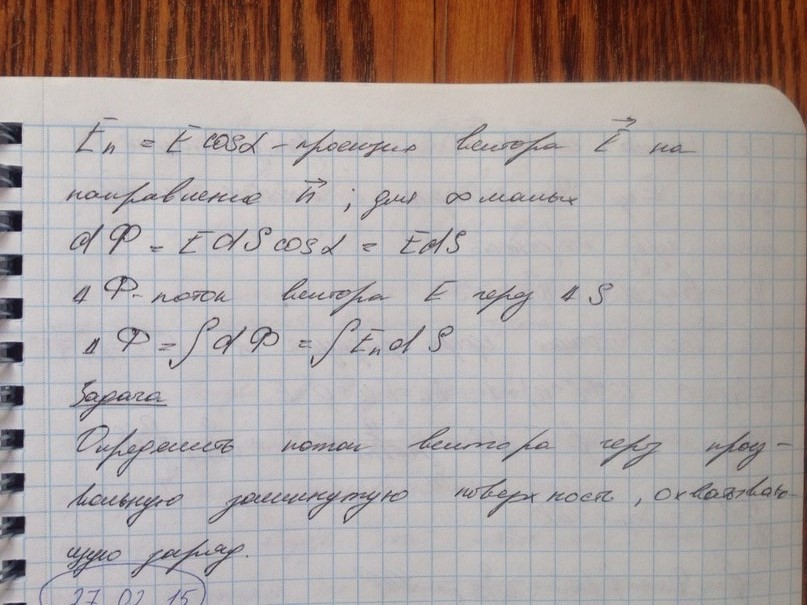 Eₙ = E cosα - проекция вектора E⃗ на
направление n⃗ ; для ∞ малых
dФ = E dS cosα = EdS
ΔФ - поток вектора E через ΔS
ΔФ = ∫dФ = ∫EₙdS
Задача
Определить поток вектора через произ-
вольную замкнутую поверхность, охватываю-
щую заряд.
27 02 15